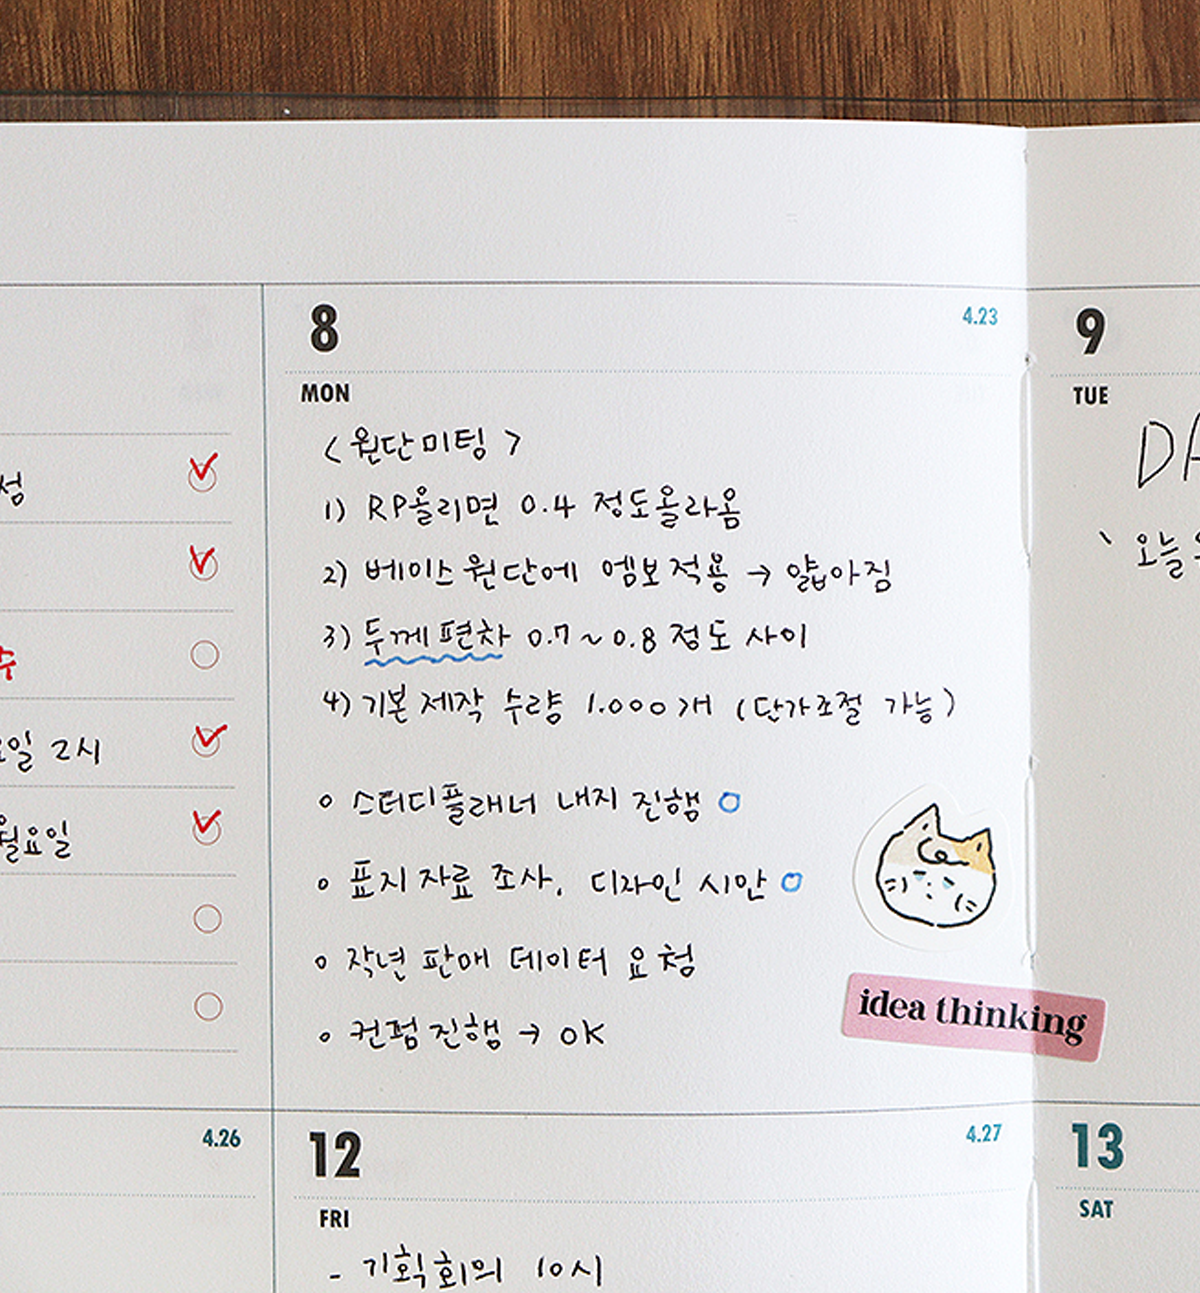 8
4.23
MON
<원단미팅>
1) RP올리면 0.4 정도올라옴
2) 베이스원단에 엠보적용 → 얇아짐
3) 두께편차 0.7~0.8 정도 사이
4) 기본 제작 수량 1.000개 (단가조절 가능)
스터디플래너 내지 진행
표지 자료 조사, 디자인 시안
작년 판매 데이터 요청
컨펌진행 → OK
idea thinking
2시
월요일
9
TUE
오늘
4.26
12
4.27
FRI
- 기획회의 10시
13
SAT